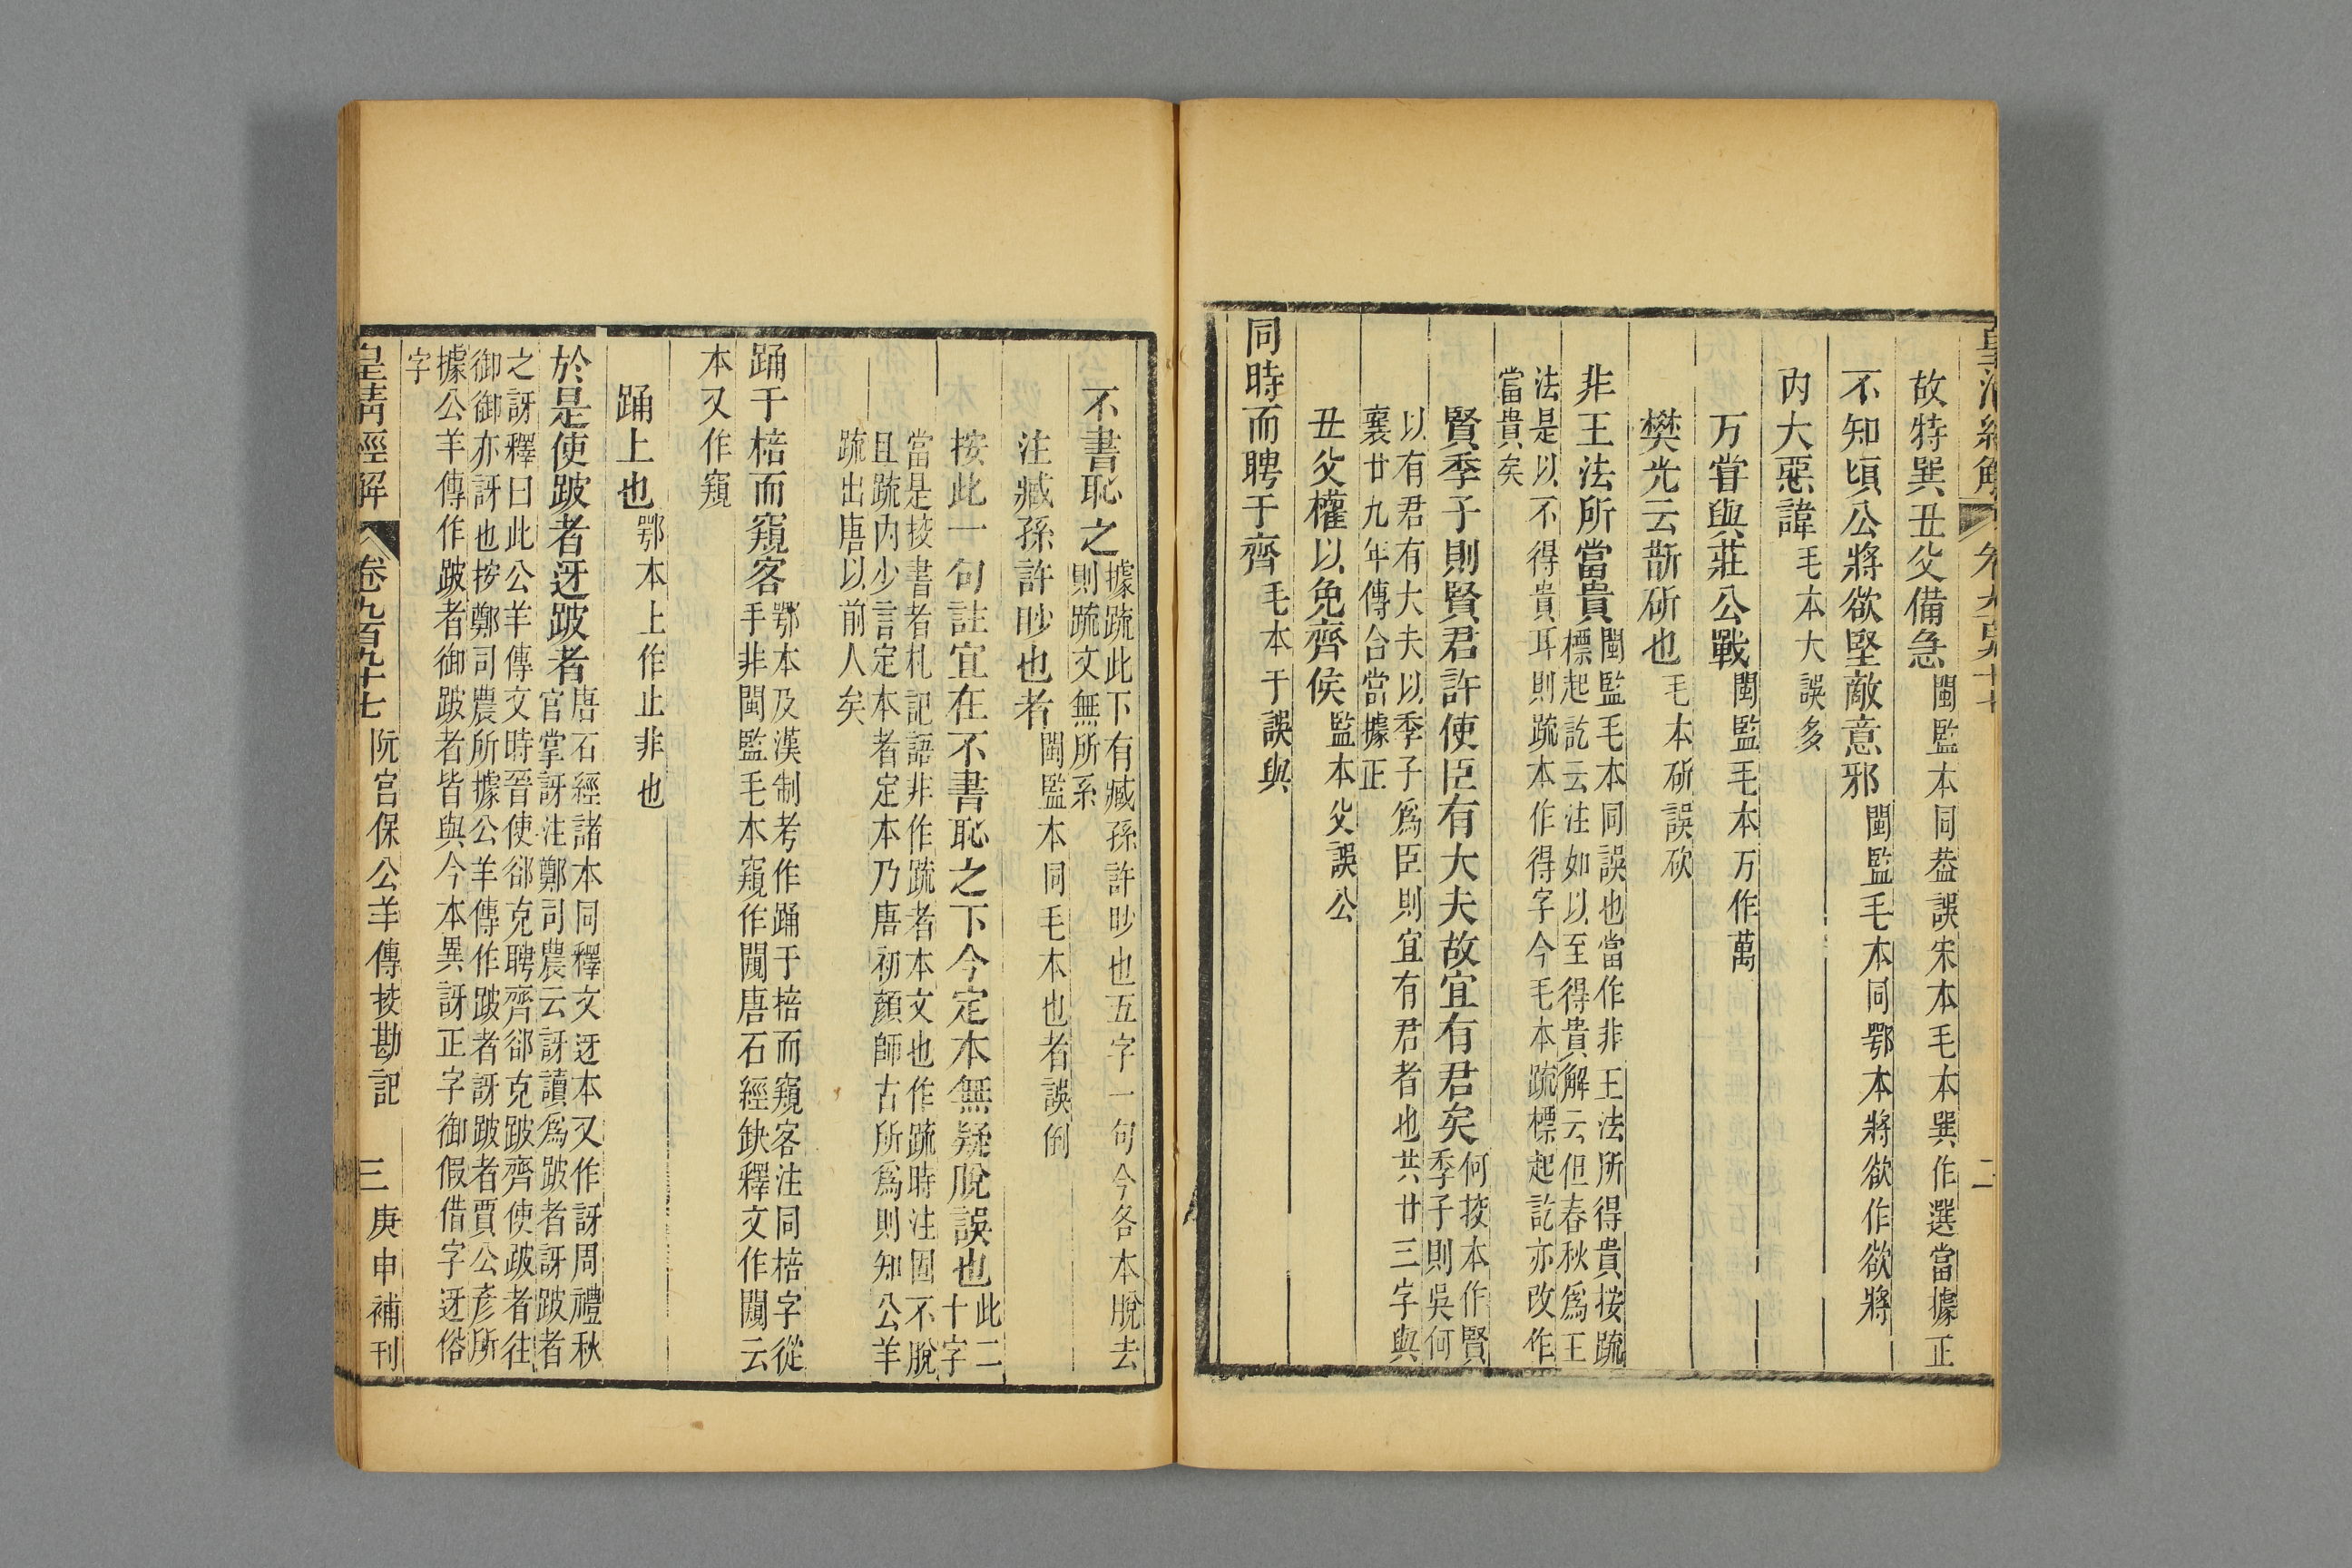 故特巽丑父備急閩監本同葢誤宋本毛本巽作選當據正
不知頃公將欲堅敵意邪閩監毛本同鄂本將欲作欲將
內大惡諱毛本大誤多
万嘗與莊公戰閩監毛本万作萬
樊光云斮斫也毛本斫誤砍
非王法所當貴閩監毛本同誤也當作非王法所得貴按疏
標起訖云注如以至得貴解云但春秋爲王
法是以不得貴耳則疏本作得字今毛本疏標起訖亦改作
當貴矣
賢季子則賢君許使臣有大夫故宜有君矣何挍本作賢
季子則吳何
以有君有大夫以季子爲臣則宜有君者也共廿三字與
襄廿九年傳合當據正
丑父權以免齊侯監本父誤公
同時而聘于齊毛本于誤與
二
不書恥之據疏此下有臧孫許眇也五字一句今各本脫去
則疏文無所系
注臧孫許眇也者閩監本同毛本也者誤倒
按此一句註宜在不書恥之下今定本無疑脫誤也此二
十字
當是挍書者札記語非作疏者本文也作疏時注固不脫
且疏内少言定本者定本乃唐初顏師古所爲則知公羊
疏出唐以前人矣
踊于棓而窺客鄂本及漢制考作踊于棓而窺客注同棓字從
手非閩監毛本窺作闚唐石經缺釋文作闚云
本又作窺
踊上也鄂本上作止非也
於是使跛者迓跛者唐石經諸本同釋文迓本又作訝周禮秋
官掌訝注鄭司農云訝讀爲跛者訝跛者
之訝釋曰此公羊傳文時晉使郤克聘齊郤克跛齊使跛者往
御御亦訝也按鄭司農所據公羊傳作跛者訝跛者賈公彥所
據公羊傳作跛者御跛者皆與今本異訝正字御假借字迓俗
字
皇清經解 卷九百九十七 阮宮保公羊傳挍勘記 三 庚申補刊